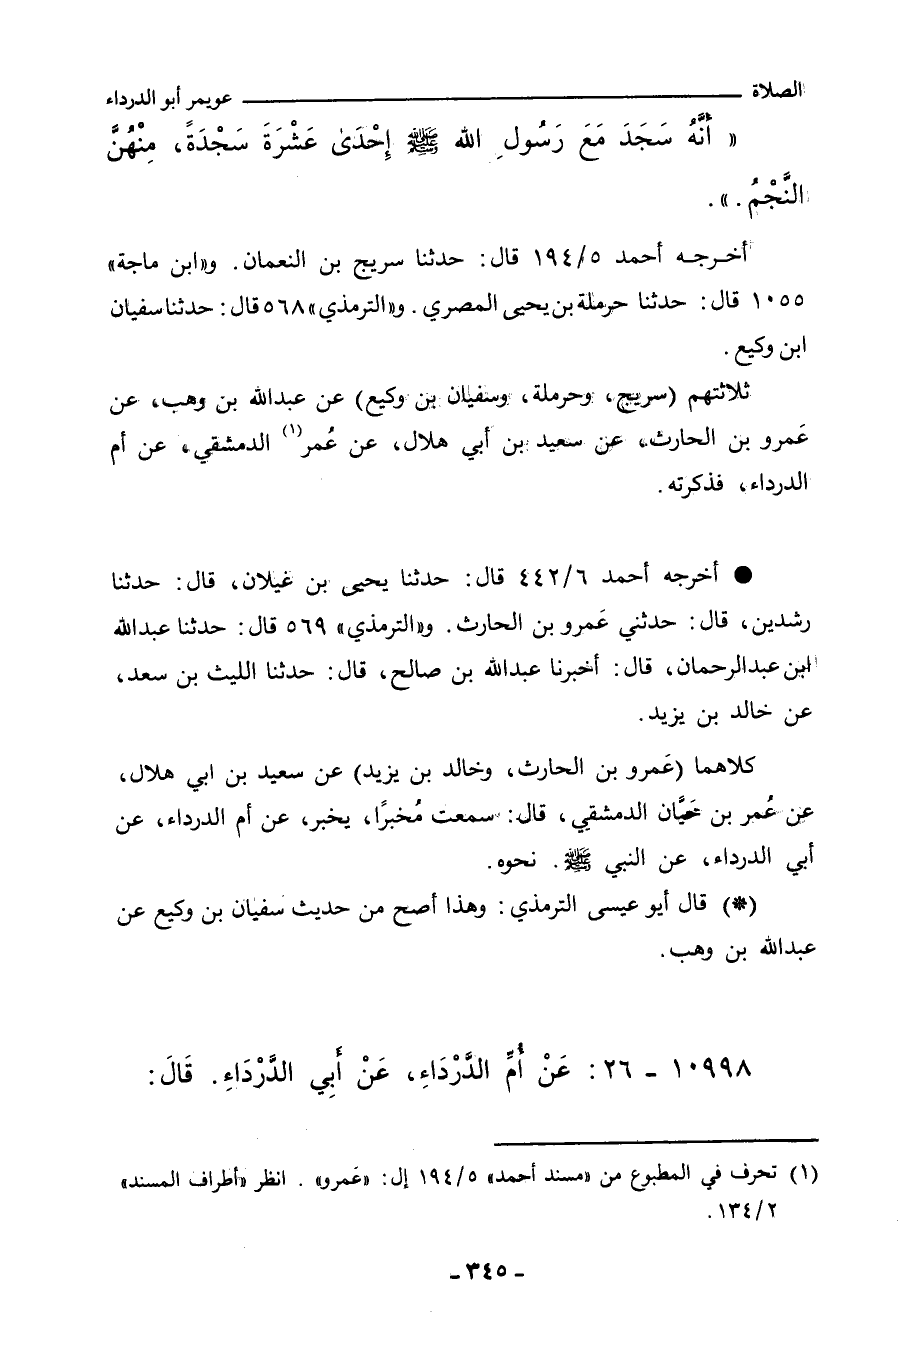 الصلاة عويمر أبو الدرداء
« أَنَّهُ سَجَدَ مَعَ رَسُولِ الله ﷺ إِحْدَىٰ عَشْرَةَ سَجْدَةً، مِنْهُنَّ
النَّجْمُ. ».
أخرجه أحمد ١٩٤/٥ قال: حدثنا سريج بن النعمان. و«ابن ماجة»
١٠٥٥ قال: حدثنا حرملة بن يحيى المصري. و«الترمذي» ٥٦٨ قال: حدثنا سفيان
ابن وكيع.
ثلاثتهم (سريج، وحرملة، وسفيان بن وكيع) عن عبدالله بن وهب، عن
عَمرو بن الحارث، عن سعيد بن أبي هلال، عن عُمر(١) الدمشقي، عن أم
الدرداء، فذكرته.
● أخرجه أحمد ٤٤٢/٦ قال: حدثنا يحيى بن غيلان، قال: حدثنا
رشدين، قال: حدثني عَمرو بن الحارث. و«الترمذي» ٥٦٩ قال: حدثنا عبدالله
ابن عبدالرحمان، قال: أخبرنا عبدالله بن صالح، قال: حدثنا الليث بن سعد،
عن خالد بن يزيد.
كلاهما (عَمرو بن الحارث، وخالد بن يزيد) عن سعيد بن ابي هلال،
عن عُمر بن حَيَّان الدمشقي، قال: سمعت مُخبرًا، يخبر، عن أم الدرداء، عن
أبي الدرداء، عن النبي ﷺ. نحوه.
(*) قال أيو عيسى الترمذي: وهذا أصح من حديث سفيان بن وكيع عن
عبدالله بن وهب.
١٠٩٩٨ - ٢٦: عَنْ أُمِّ الدَّرْدَاءِ، عَنْ أَبِي الدَّرْدَاءِ. قَالَ:
(١) تحرف في المطبوع من «مسند أحمد» ١٩٤/٥ إل: «عَمرو» . انظر «أطراف المسند»
١٣٤/٢.
- ٣٤٥ -